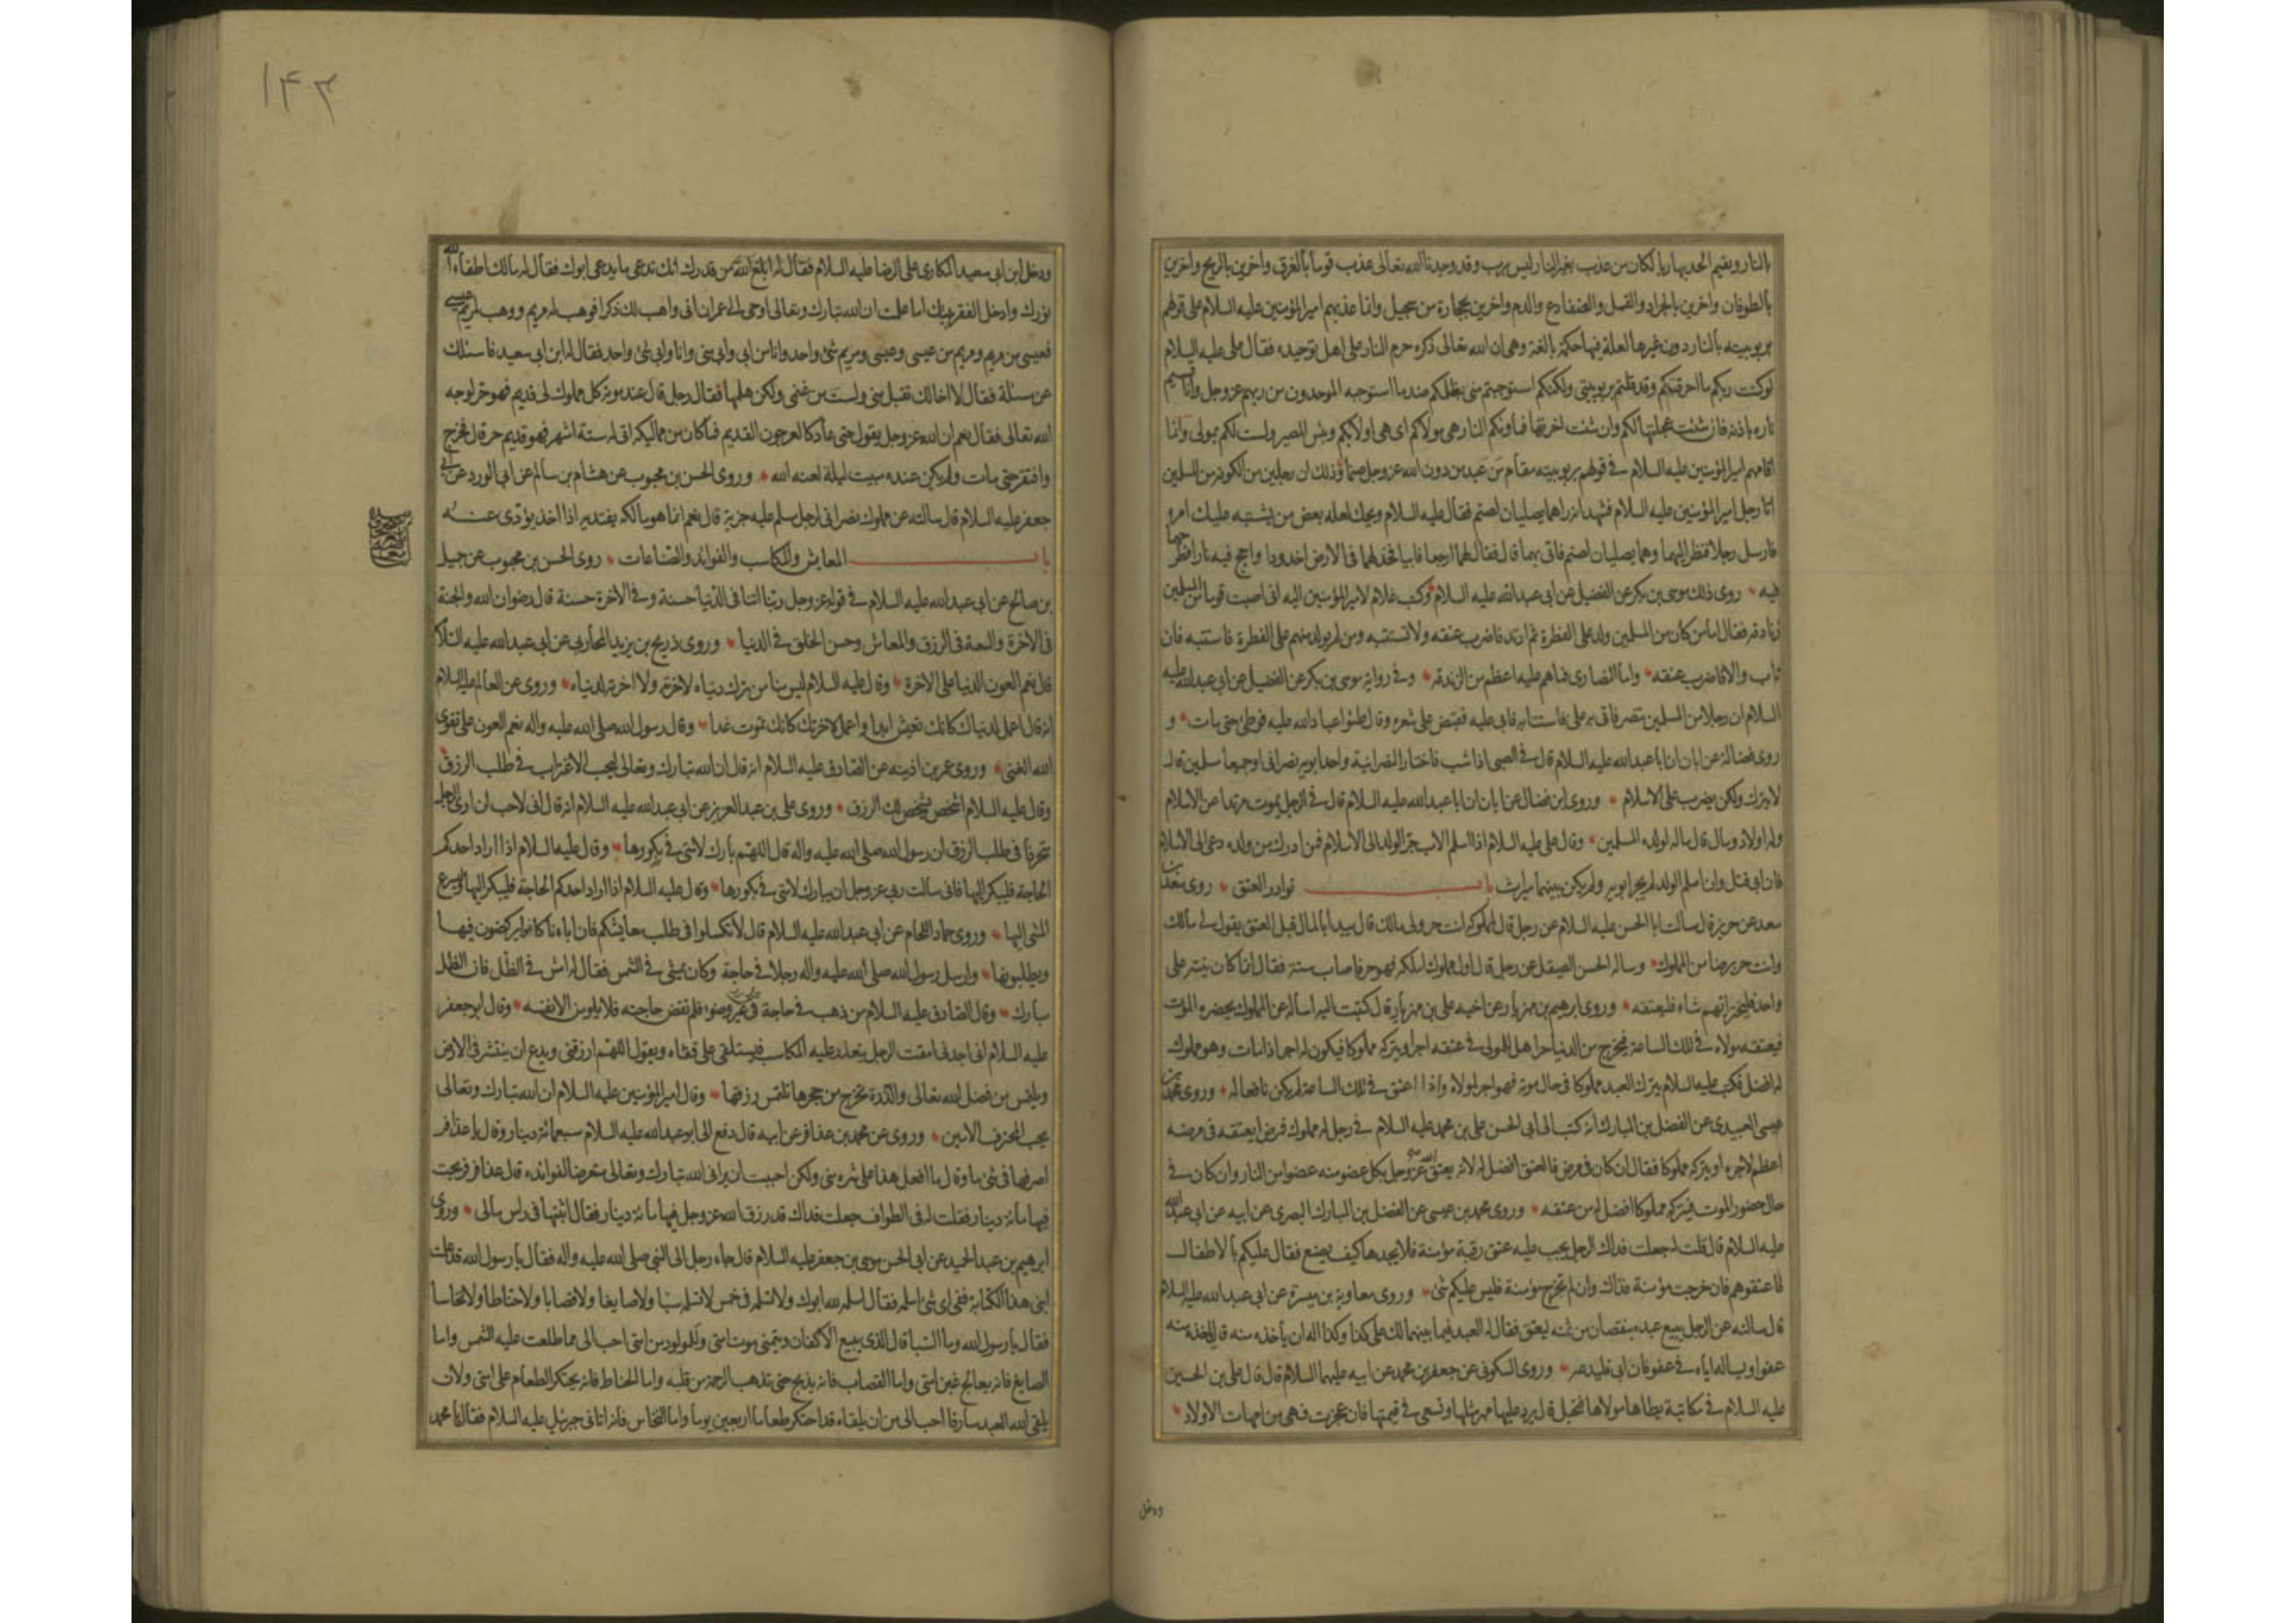 بالنار ويقيم الحد بها ربا لكان من عذب بغير النار ليس برب وقد وجدنا الله تعالى عذب قوما بالغرق واخرين بالريح واخرين
بالطوفان واخرين بالجراد والقمل والضفادع والدم واخرين بحجارة من سجيل وانما عذبهم امير المؤمنين عليه السلام على قولهم
بربوبيته بالنار دون غيرها لعلة فيها حكمة بالغة وهى ان الله تعالى ذكره حرم النار على اهل توحيده فقال على عليه السلام
لو كنت ربكم ما احرقتكم وقد قلتم بربوبيتى ولكنكم استوجبتم منى بظلمكم ضد ما استوجبه الموحدون من ربهم عز وجل وانا قسيم
ناره باذنه فان شئت عجلتها لكم وان شئت اخرتها فمأويكم النار هى مولاكم اى هى اولى بكم وبئس المصير ولست لكم بمولى وانما
اقامهم امير المؤمنين عليه السلام فى قولهم بربوبيته مقام من عبد من دون الله عز وجل صنما وذلك ان رجلين من الكوفة من المسلمين
اتا رجل امير المؤمنين عليه السلام فشهد انه راهما يصليان لصنم فقال عليه السلام ويحك لعله بعض من يشتبه عليك امره
فارسل رجلا فنظر اليهما وهما يصليان لصنم فاتى بهما قال فقال لهما ارجعا فابيا فخد لهما فى الارض اخدودا واجج فيه نارا فطرحهما
فيه روى ذلك موسى بن بكر عن الفضيل عن ابى عبد الله عليه السلام وكتب غلام لامير المؤمنين اليه انى اصبت قوما من المسلمين
زنادقة فقال اما من كان من المسلمين ولد على الفطرة ثم ارتد فاضرب عنقه ولا تستتبه ومن لم يولد منهم على الفطرة فاستتبه فان
تاب والا فاضرب عنقه واما النصارى فما هم عليه اعظم من الزندقة وفى رواية موسى بن بكر عن الفضيل عن ابى عبد الله عليه
السلام ان رجلا من المسلمين تنصر فاتى به على فاستتابه فابى عليه فقبض على شعره وقال طئوا عباد الله عليه فوطئ حتى مات و
روى فضالة عن ابان ان ابا عبد الله عليه السلام قال فى الصبى اذا شب فاختار النصرانية واحد ابويه نصرانى او جميعا مسلمين قال
لا يترك ولكن يضرب على الاسلام وروى ابن فضال عن ابان ان ابا عبد الله عليه السلام قال فى الرجل يموت مرتدا عن الاسلام
وله اولاد ومال قال ماله لولده المسلمين وقال على عليه السلام اذا اسلم الاب جر الولد الى الاسلام فمن ادرك من ولده دعى الى الاسلام
فان ابى قتل وان اسلم الولد لم يجر ابويه ولم يكن بينهما ميراث باب نوادر العتق روى سعد بن
سعد عن حريز قال سالت ابا الحسن عليه السلام عن رجل قال لمملوكه انت حر ولى مالك قال يبدا بالمال قبل العتق يقول لى مالك
وانت حر برضا من المملوك وساله الحسن الصيقل عن رجل قال اول مملوك املكه فهو حر فاصاب ستة فقال انما كان نيته على
واحد فليختر ايهم شاء فليعتقه وروى ابرهيم بن مهزيار عن اخيه على بن مهزيار قال كتبت اليه اساله عن المملوك يحضره الموت
فيعتقه مولاه فى تلك الساعة فيخرج من الدنيا حرا هل للمولى فى عتقه اجر او يتركه مملوكا فيكون له اجر اذا مات وهو مملوك
له افضل فكتب عليه السلام يترك العبد مملوكا فى حال موته فهو اجر لمولاه واذا اعتق فى تلك الساعة لم يكن نافعا له وروى محمد بن
عيسى العبيدى عن الفضل بن المبارك انه كتب الى ابى الحسن على بن محمد عليه السلام فى رجل له مملوك فمرض ايعتقه فى مرضه
اعظم لاجره او يتركه مملوكا فقال ان كان فى مرض فالعتق افضل له لانه يعتق الله عز وجل بكل عضو منه عضوا من النار وان كان فى
حال حضور الموت فيتركه مملوكا افضل له من عتقه وروى محمد بن عيسى عن الفضل بن المبارك البصرى عن ابيه عن ابى عبد الله
عليه السلام قال قلت له جعلت فداك الرجل يجب عليه عتق رقبة مؤمنة فلا يجدها كيف يصنع فقال عليكم بالاطفال
فاعتقوهم فان خرجت مؤمنة فذاك وان لم تخرج مؤمنة فليس عليكم شئ وروى معاوية بن ميسرة عن ابى عبد الله عليه السلام
قال سالته عن الرجل يبيع عبده بنقصان من ثمنه ليعتق فقال له العبد فيما بينهما لك على كذا وكذا اله ان ياخذه منه قال ياخذه منه
عفوا ويساله اياه فى عفو فان ابى فليدعه وروى السكونى عن جعفر بن محمد عن ابيه عليهما السلام قال قال على بن الحسين
عليه السلام فى مكاتبة يطاها مولاها فتحبل قال يرد عليها مهر مثلها وتسعى فى قيمتها فان عجزت فهى من امهات الاولاد
ودخل
١٤٣
ودخل ابن ابى سعيد المكارى على الرضا عليه السلام فقال له ابلغ الله من قدرك انك تدعى ما يدعى ابوك فقال له مالك اطفاء الله
نورك وادخل الفقر بيتك اما علمت ان الله تبارك وتعالى اوحى الى عمران انى واهب لك ذكرا فوهب له مريم ووهب لمريم عيسى
فعيسى بن مريم ومريم من عيسى وعيسى ومريم شئ واحد وانا من ابى وابى منى وانا وابى شئ واحد فقال له ابن ابى سعيد فاسئلك
عن مسئلة فقال لا اخالك تقبل منى ولست من غنمى ولكن هلمها فقال رجل قال عند موته كل مملوك لى قديم فهو حر لوجه
الله تعالى فقال نعم ان الله عز وجل يقول حتى عاد كالعرجون القديم فما كان من مماليكه اتى له ستة اشهر فهو قديم حر قال فخرج
وافتقر حتى مات ولم يكن عنده مبيت ليلة لعنه الله وروى الحسن بن محبوب عن هشام بن سالم عن ابى الورد عن ابى
جعفر عليه السلام قال سالته عن مملوك نصرانى لرجل مسلم عليه جزية قال نعم انما هو مالكه يفتديه اذا اخذ يؤدى عنه
باب المعايش والمكاسب والفوائد والصناعات روى الحسن بن محبوب عن جميل
بن صالح عن ابى عبد الله عليه السلام فى قوله عز وجل ربنا اتنا فى الدنيا حسنة وفى الاخرة حسنة قال رضوان الله والجنة
فى الاخرة والسعة فى الرزق والمعاش وحسن الخلق فى الدنيا وروى ذريح بن يزيد المحاربى عن ابى عبد الله عليه السلام
قال نعم العون الدنيا على الاخرة وقال عليه السلام ليس منا من ترك دنياه لاخرته ولا اخرته لدنياه وروى عن العالم عليه السلام
انه قال اعمل لدنياك كانك تعيش ابدا واعمل لاخرتك كانك تموت غدا وقال رسول الله صلى الله عليه واله نعم العون على تقوى
الله الغنى وروى عمر بن اذينه عن الصادق عليه السلام انه قال ان الله تبارك وتعالى ليحب الاغتراب فى طلب الرزق
وقال عليه السلام اشخص يشخص لك الرزق وروى على بن عبد العزيز عن ابى عبد الله عليه السلام انه قال انى لاحب ان ارى الرجل
متحرفا فى طلب الرزق ان رسول الله صلى الله عليه واله قال اللهم بارك لامتى فى بكورها وقال عليه السلام اذا اراد احدكم
الحاجة فليبكر اليها فانى سالت ربى عز وجل ان يبارك لامتى فى بكورها وقال عليه السلام اذا اراد احدكم الحاجة فليبكر اليها وليسرع
المشى اليها وروى حماد اللحام عن ابى عبد الله عليه السلام قال لا تكسلوا فى طلب معايشكم فان اباءنا كانوا يركضون فيها
ويطلبونها وارسل رسول الله صلى الله عليه واله رجلا فى حاجة وكان يمشى فى الشمس فقال له امش فى الظل فان الظل
مبارك وقال الصادق عليه السلام من ذهب فى حاجة على غير وضوء فلم تقض حاجته فلا يلومن الا نفسه وقال ابو جعفر
عليه السلام انى اجدنى امقت الرجل يتعذر عليه المكاسب فيستلقى على قفاه ويقول اللهم ارزقنى ويدع ان ينتشر فى الارض
ويلتمس من فضل الله تعالى والذرة تخرج من حجرها تلتمس رزقها وقال امير المؤمنين عليه السلام ان الله تبارك وتعالى
يحب المحترف الامين وروى عن محمد بن عذافر عن ابيه قال دفع الى ابو عبد الله عليه السلام سبعمائة دينار وقال يا عذافر
اصرفها فى شئ ما وقال ما افعل هذا على شره منى ولكن احببت ان يرانى الله تبارك وتعالى متعرضا لفوائده قال عذافر فربحت
فيها مائة دينار فقلت له فى الطواف جعلت فداك قد رزق الله عز وجل فيها مائة دينار فقال اثبتها فى راس مالى وروى
ابرهيم بن عبد الحميد عن ابى الحسن موسى بن جعفر عليه السلام قال جاء رجل الى النبى صلى الله عليه واله فقال يا رسول الله قد علمت
ابنى هذا الكتابة ففى اى شئ اسلمه فقال اسلمه لله ابوك ولا تسلمه فى خمس لا تسلمه سبا ولا صايغا ولا قصابا ولا حناطا ولا نخاسا
فقال يا رسول الله وما السبا قال الذى يبيع الاكفان ويتمنى موت امتى وللمولود من امتى احب الى مما طلعت عليه الشمس واما
الصايغ فانه يعالج غبن امتى واما القصاب فانه يذبح حتى تذهب الرحمة من قلبه واما الحناط فانه يحتكر الطعام على امتى ولان
يلقى الله العبد سارقا احب الى من ان يلقاه قد احتكر طعاما اربعين يوما واما النخاس فانه اتانى جبرئيل عليه السلام فقال يا محمد